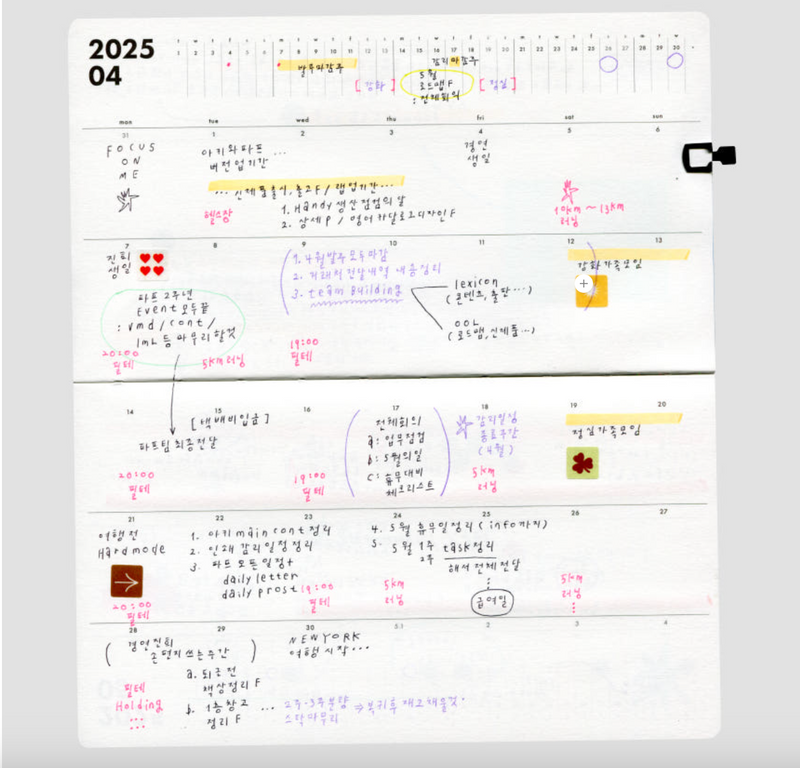 2025
04
t w t f s s m t w t f s s m t w t f s s m t w t f s s m t w
1 2 3 4 5 6 7 8 9 10 11 12 13 14 15 16 17 18 19 20 21 22 23 24 25 26 27 28 29 30
발주마감주
감리마감주
[강화]
5월
로드맵F
:전체회의
[정실]
mon tue wed thu fri sat sun
31 1 2 3 4 5 6
FOCUS
ON
ME
아키와파프 ...
버전업기간
경연
생일
... 신제품출시, 출고F / 랩업기간...
헬스장
1. Handy 생산점검의 달
2. 상세P / 영어카달로그디자인F
10km ~ 13km
러닝
7 8 9 10 11 12 13
진희
생일
1. 4월발주모두마감
2. 거래처전달내역 내용정리
3. team Building
강화가족모임
파프 2주년
Event 모두끝
: vmd / cont /
lml 등 마무리할것
lexicon
(콘텐츠, 출판...)
OOL
(로드맵, 신제품...)
20:00
필테
5km 러닝
19:00
필테
14 15 16 17 18 19 20
[택배비입금]
파프팀최종전달
전체회의
a: 업무점검
b: 5월의일
c: 휴무대비
체크리스트
감리일정
종료구간
(4월)
정실가족모임
20:00
필테
19:00
필테
5km
러닝
21 22 23 24 25 26 27
여행전
Hard mode
1. 아키 main cont 정리
2. 인쇄 감리일정정리
3. 파프 오픈일정+
daily letter
daily prost
4. 5월 휴무일정리 (info까지)
5. 5월 1주 task정리
2주
해서 전체 전달
급여일
20:00
필테
19:00
필테
5km
러닝
5km
러닝
28 29 30 51 2 3 4
(경연진희
손편지쓰는주간)
NEWYORK
여행시작...
a. 퇴근전
책상정리F
필테
Holding
b. 1층창고 ...
정리F
2주-3주분량 ⇒ 복귀후재고채울것.
스탁마무리